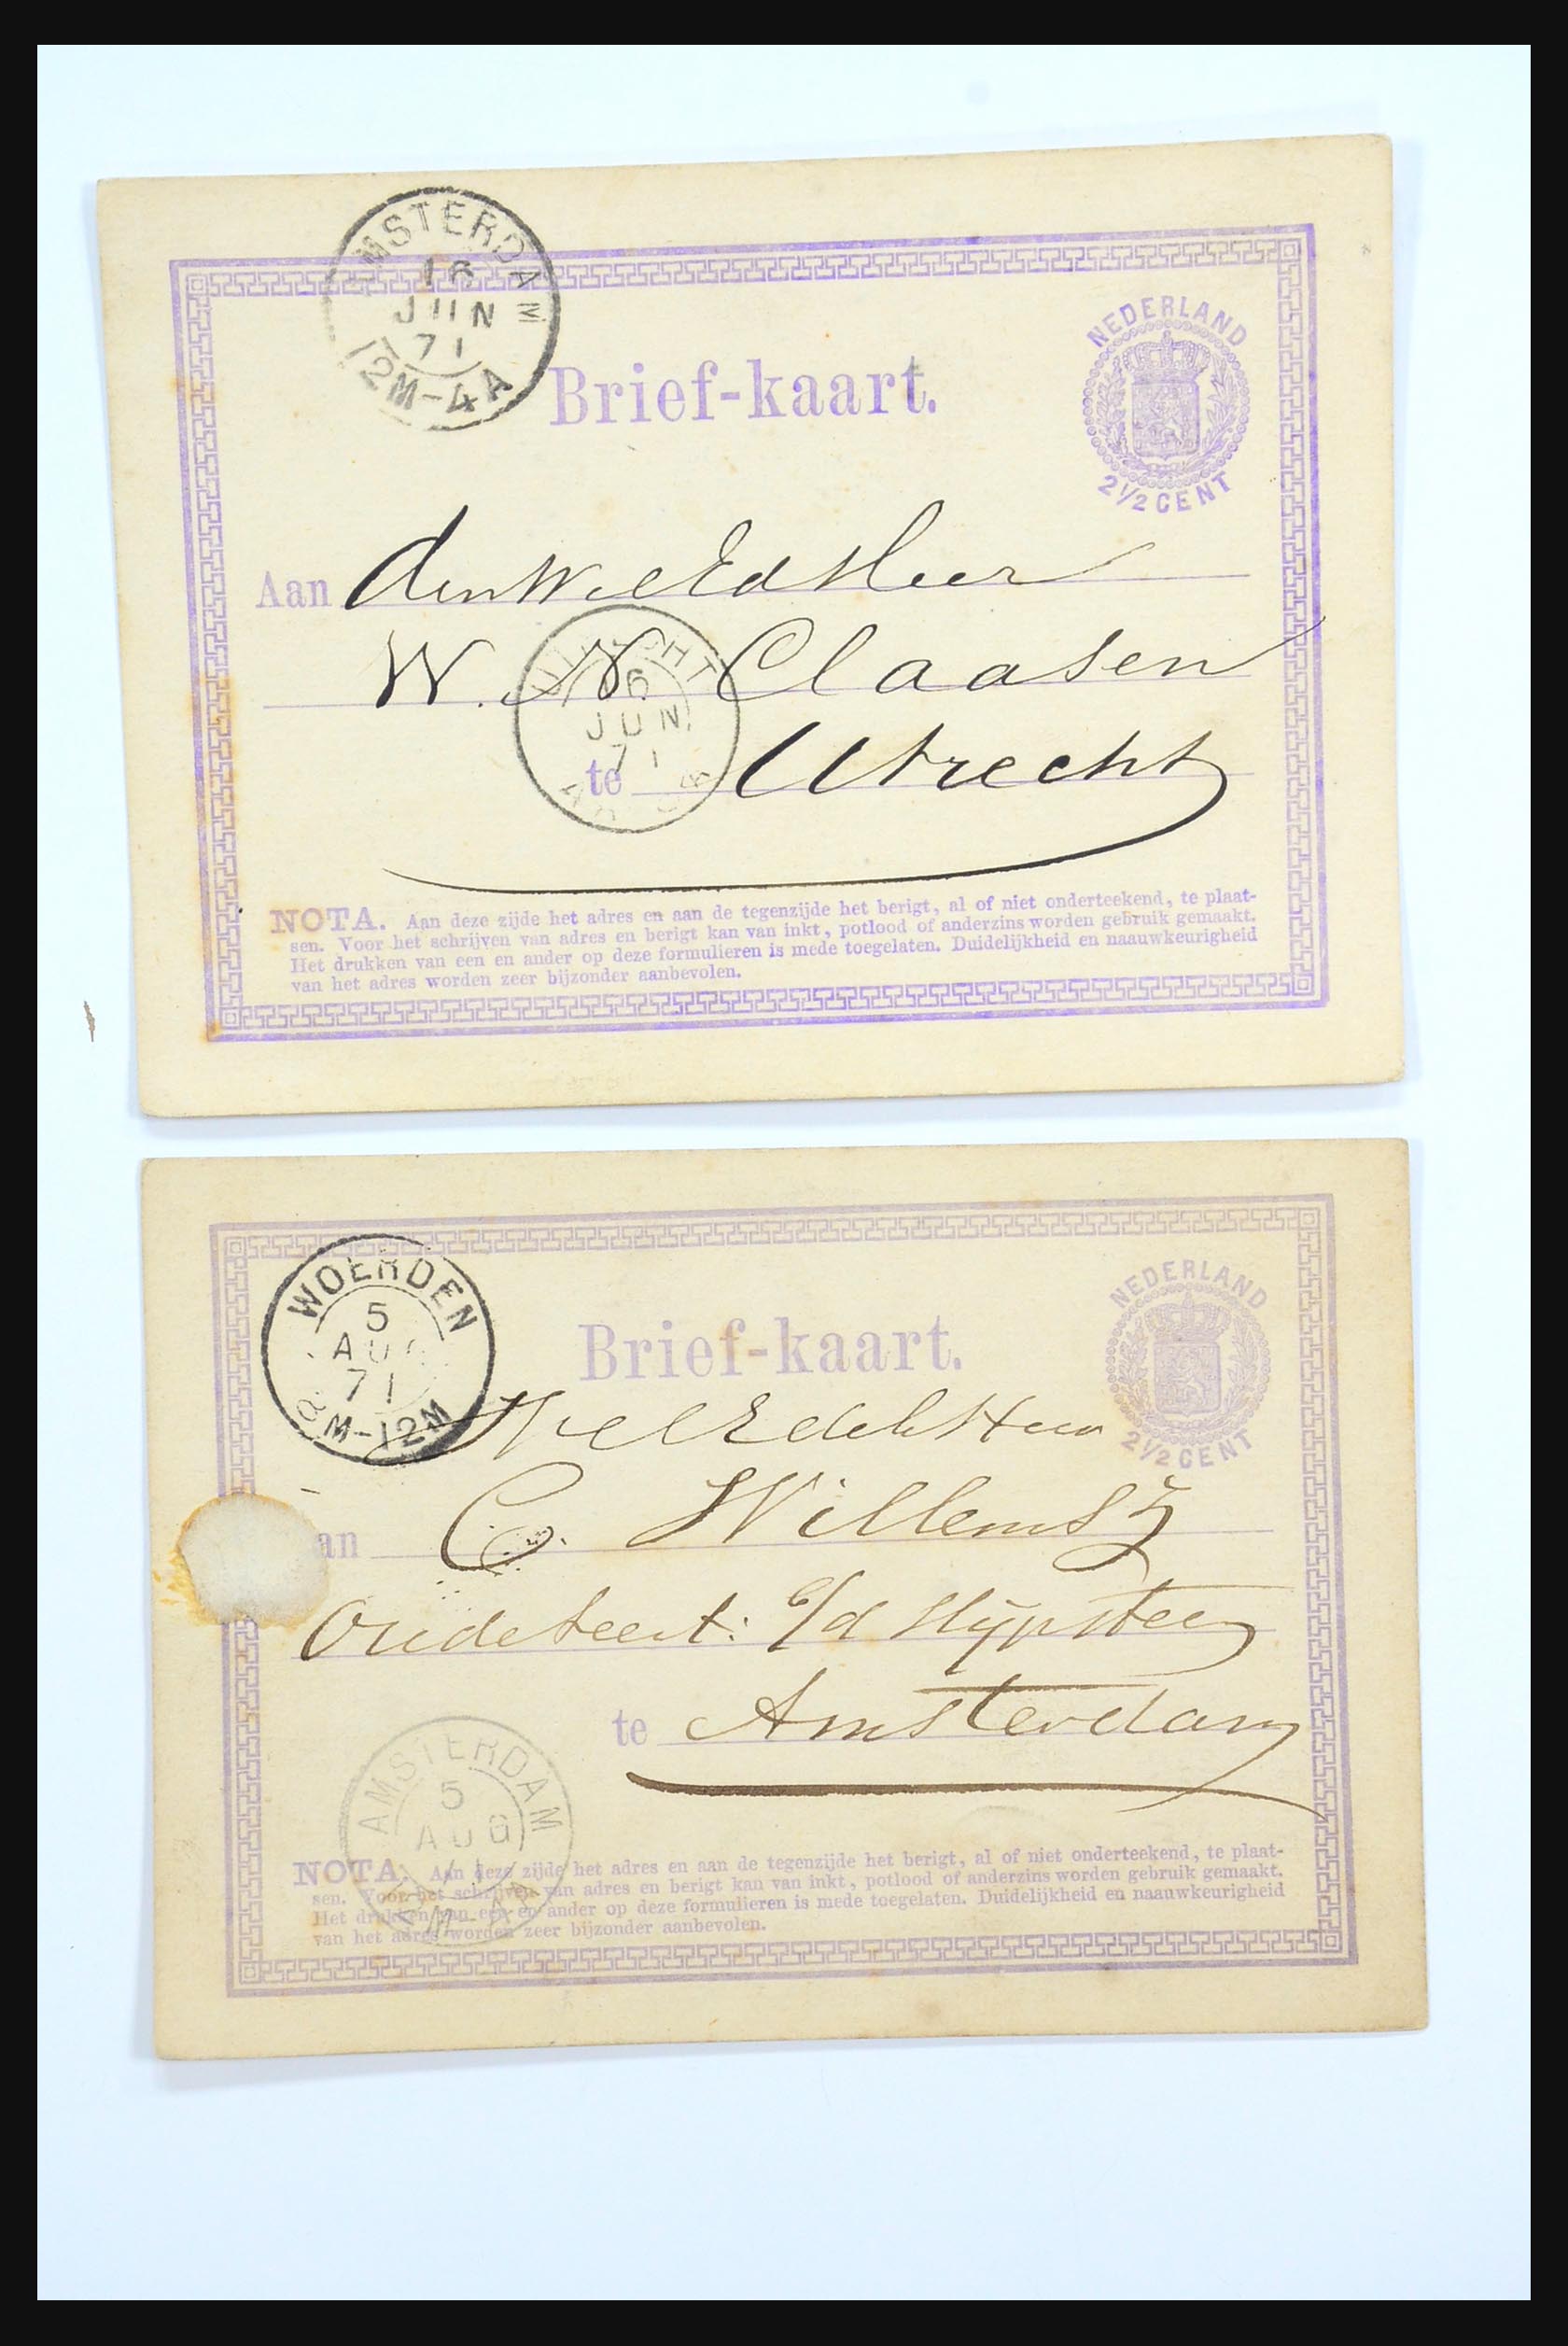 AMSTERDAM
16
JUN
71
12M-4A
NEDERLAND
2½ CENT
Brief-kaart.
Aan den WelEd Heer
W. N. Claasen
UTRECHT
16
JUN
71
te Utrecht
NOTA. Aan deze zijde het adres en aan de tegenzijde het berigt, al of niet onderteekend, te plaat-
sen. Voor het schrijven van adres en berigt kan van inkt, potlood of anderzins worden gebruik gemaakt.
Het drukken van een en ander op deze formulieren is mede toegelaten. Duidelijkheid en naauwkeurigheid
van het adres worden zeer bijzonder aanbevolen.
WOERDEN
5
AUG
71
8M-12M
NEDERLAND
2½ CENT
Brief-kaart.
WelEdele Heer
an C. Willemsz
Oudeteert: o/d Nypsteeg
te Amsterdam
AMSTERDAM
5
AUG
NOTA. Aan deze zijde het adres en aan de tegenzijde het berigt, al of niet onderteekend, te plaat-
sen. Voor het schrijven van adres en berigt kan van inkt, potlood of anderzins worden gebruik gemaakt.
Het drukken van een en ander op deze formulieren is mede toegelaten. Duidelijkheid en naauwkeurigheid
van het adres worden zeer bijzonder aanbevolen.